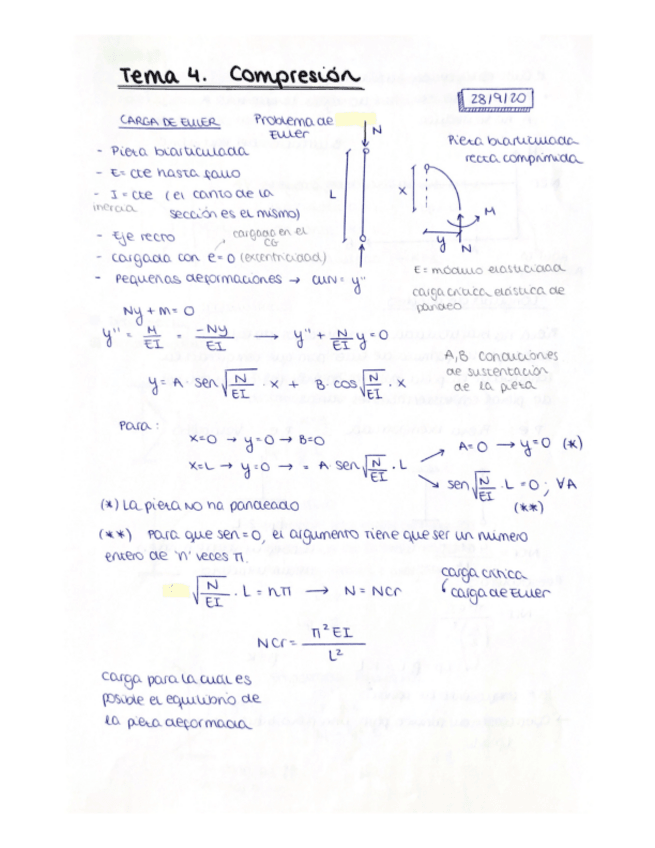 Tema 4. Compresión
28/9/20
CARGA DE EULER
Problema de
Euler
- Pieza biarticulada
- E = cte hasta fallo
- I = cte (el canto de la
inercia sección es el mismo)
- Eje recto
cargada en el
CG
- cargada con e=0 (excentricidad)
- Pequeñas deformaciones → curv = y''
N
L
Pieza biarticulada
recta comprimida
x
M
y N
E = módulo elasticidad
carga crítica elástica de
pandeo
Ny + M = 0
y'' = M/EI = -Ny/EI → y'' + N/EI y = 0
y = A · sen √(N/EI) · x + B · cos √(N/EI) · x
A, B condiciones
de sustentación
de la pieza
Para:
x=0 → y=0 → B=0
x=L → y=0 → = A · sen √(N/EI) · L
A=0 → y=0 (*)
sen √(N/EI) · L = 0 ; ∀A
(**)
(*) La pieza no ha pandeado
(**) Para que sen = 0, el argumento tiene que ser un número
entero de 'n' veces π.
√(N/EI) · L = nπ → N = Ncr
carga crítica
carga de Euler
Ncr = π² EI / L²
carga para la cual es
posible el equilibrio de
la pieza deformada